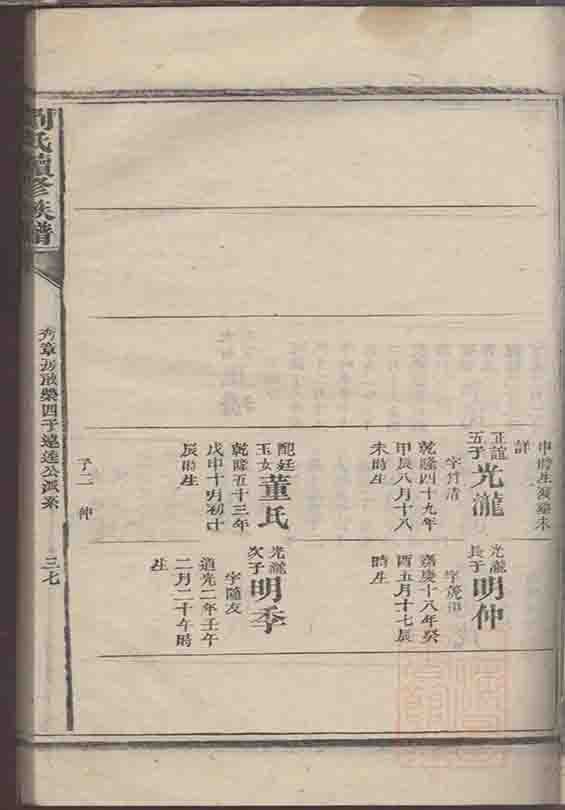 申時生葬墓未
詳
正誼
五子
光瀧
字
清
乾隆四十九年
甲辰八月十八
未時生
配廷
玉女
董氏
乾隆五十三年
戊申十月初
辰時生
子二
仲
光瀧
長子
明仲
字
嘉慶十八年癸
酉五月十七辰
時生
光瀧
次子
明季
字隨友
道光二年壬午
二月二十午時
生
氏續修族譜
秀章房啟榮四子遠達公派系
三七